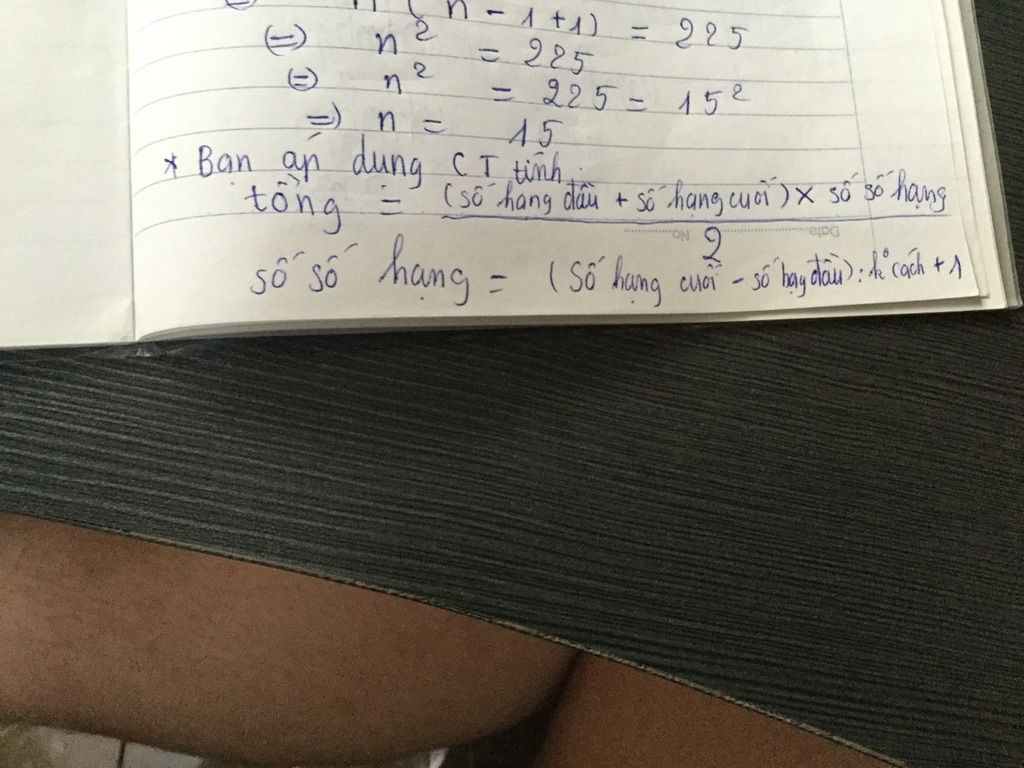 n ( n - 1 + 1) = 225
(=) n² = 225
(=) n² = 225 = 15²
=) n = 15
* Bạn áp dung CT tính
tổng = (số hạng đầu + số hạng cuối) x số số hạng
2
Date No
số số hạng = (Số hạng cuối - số hạg đầu) : k° cách + 1